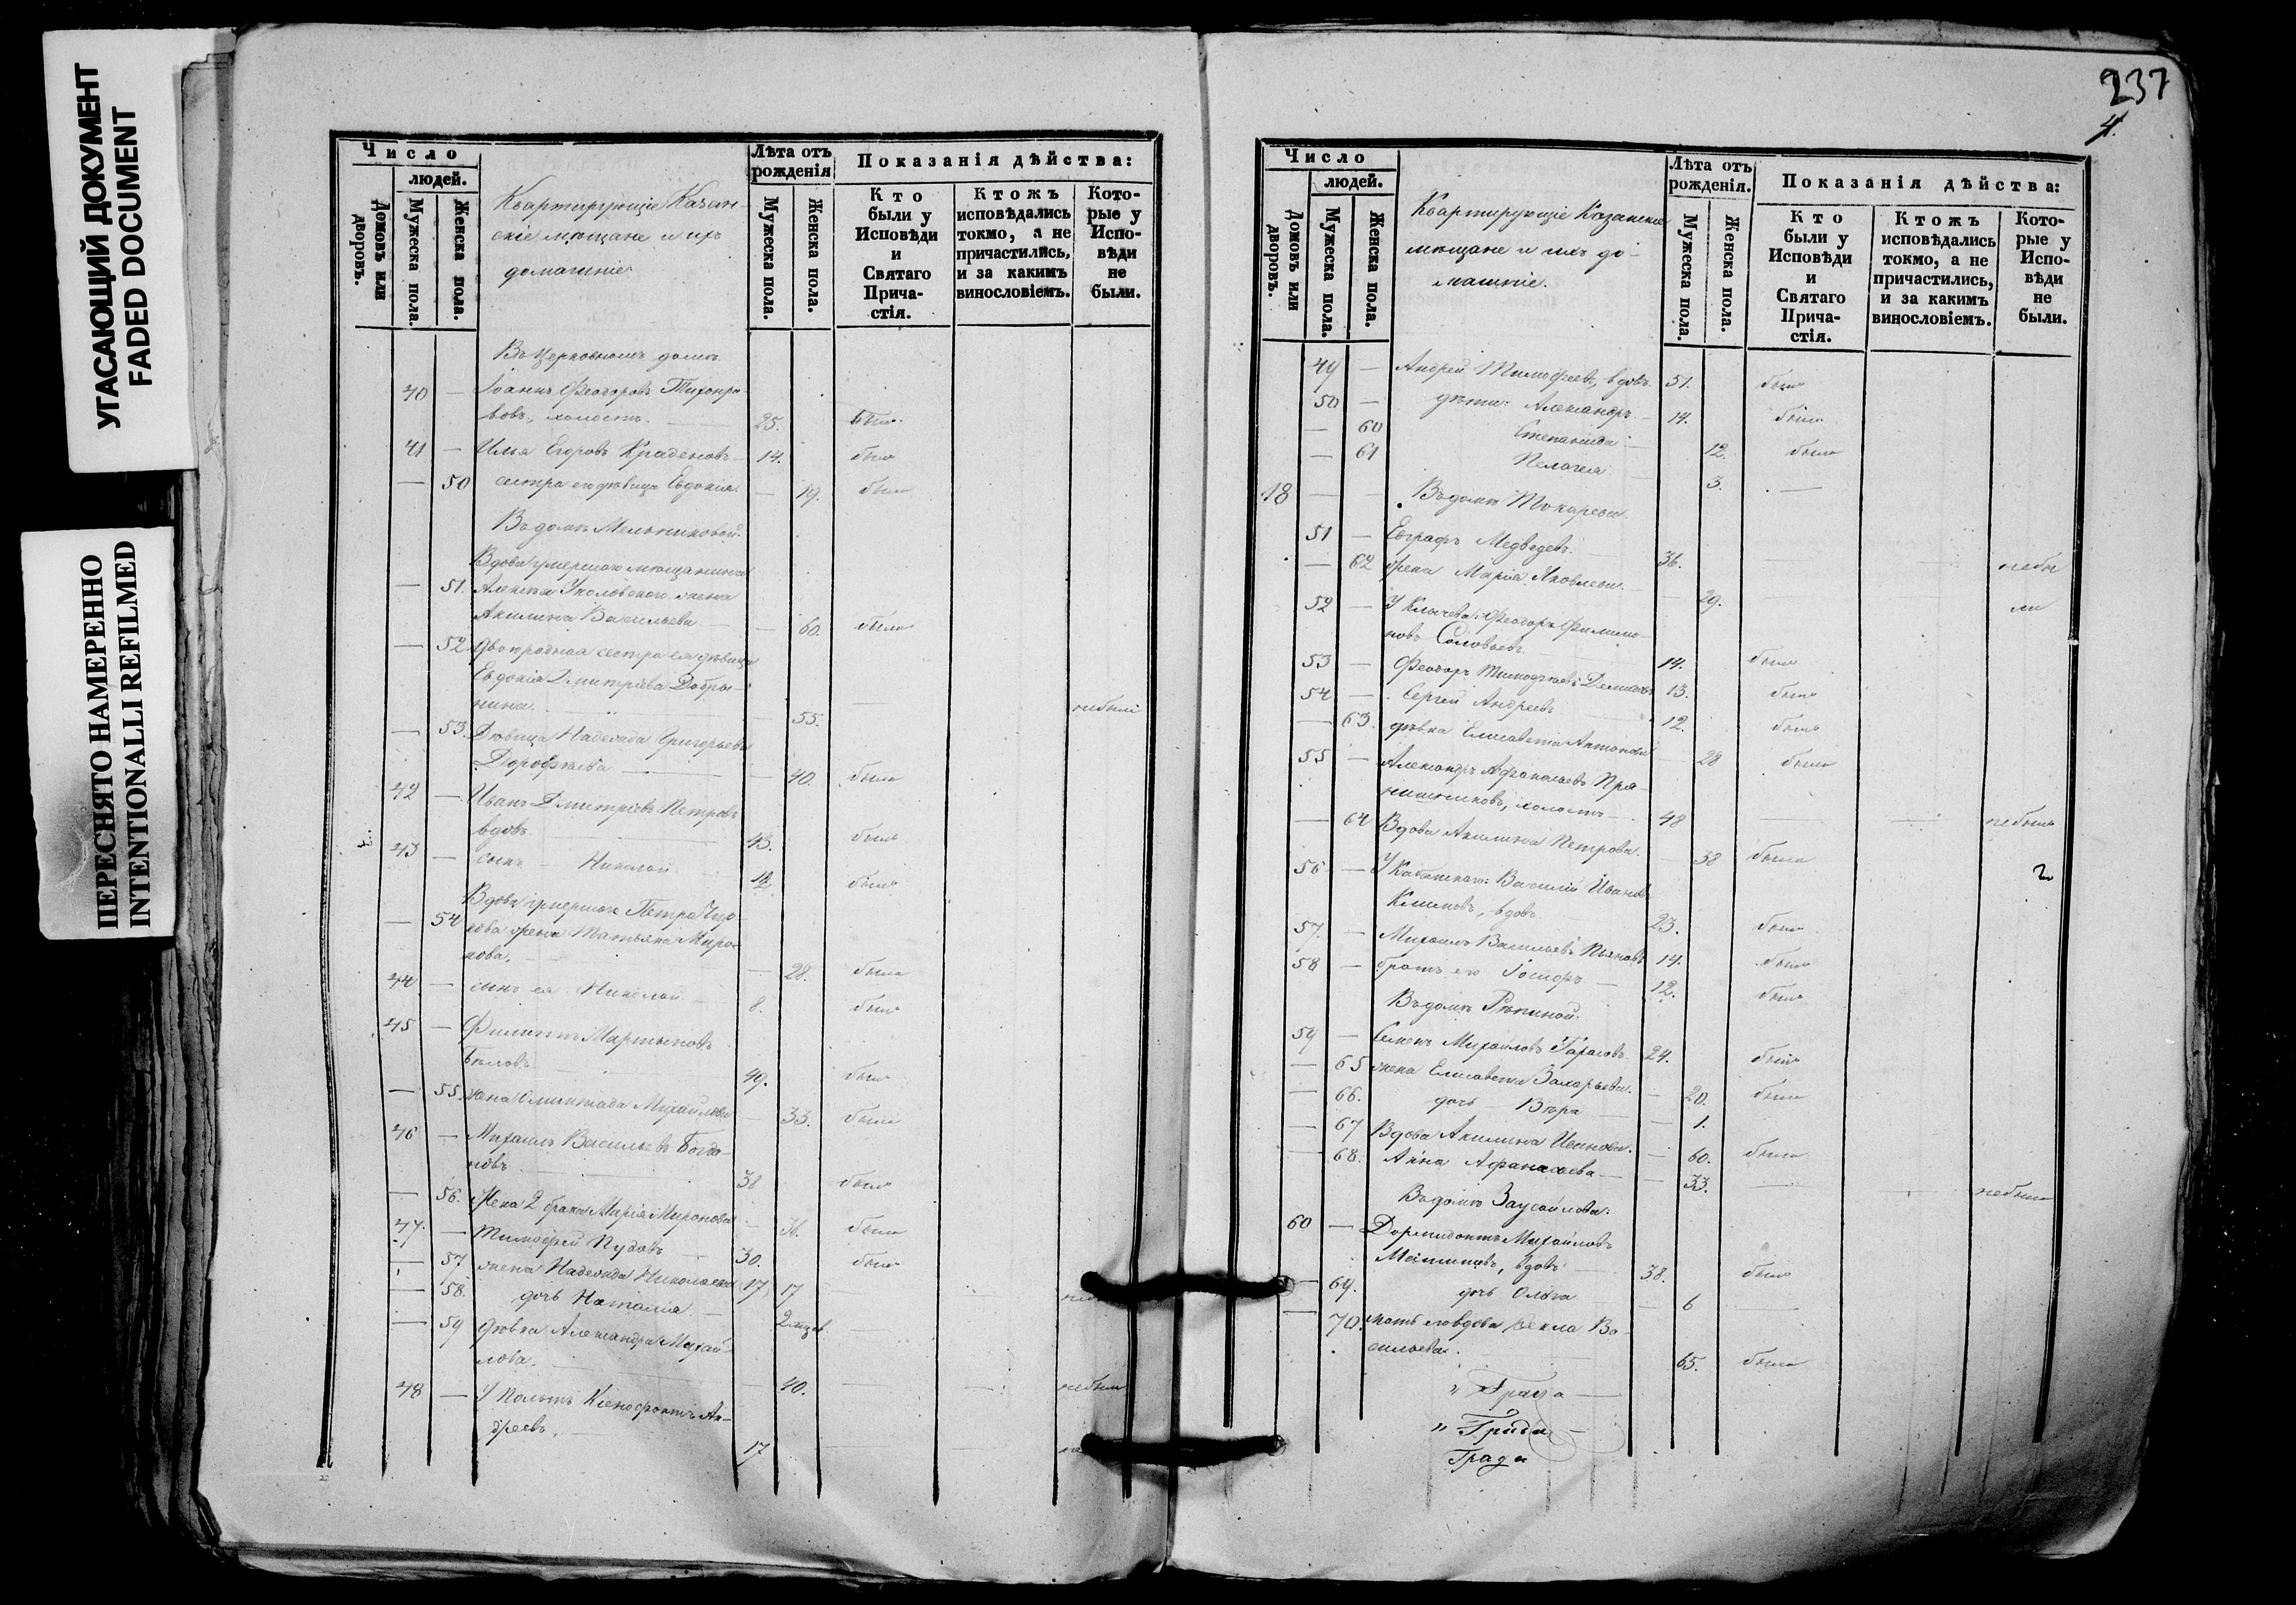 УГАСАЮЩИЙ ДОКУМЕНТ
FADED DOCUMENT
ПЕРЕСНЯТО НАМЕРЕННО
INTENTIONALLI REFILMED
Число
людей.
Домовъ или дворовъ.
Мужеска пола.
Женска пола.
Квартирующіе Казан-
скіе мѣщане и ихъ
домашніе
Лѣта отъ
рожденія
Мужеска пола.
Женска пола.
Показанія дѣйства:
Кто
были у
Исповѣди
и
Святаго
Прича-
стія.
Ктожъ
исповѣдались
токмо, а не
причастились,
и за какимъ
винословіемъ.
Кото-
рые у
Испо-
вѣди
не
были.
Въ церковномъ домѣ
40 — Іоаннъ Феодоровъ Тихонра-
вовъ, холостъ. 25. былъ
41 — Илья Егоровъ 14. былъ
— 50 сестра его дѣвица Евдокія — 19. была
Въ домѣ Мельниковой.
Вдова умершаго мѣщанина
— 51. Алексѣя жена
Акилина Васильева — 60. была
— 52 Двоюродная сестра ея дѣвица
Евдокія Дмитріева Добры-
нина. — 55. небыли
— 53. Дѣвица Надежда Григорьева
Дорофѣева — 40. была
42 — Иванъ Дмитріевъ Петровъ
вдовъ 43. былъ
43 — сынъ Николай 12 былъ
Вдова умершаго Петра
— 54 жена Татьяна Миро-
нова. — 28. была
44 — сынъ ея Николай 8. былъ
45 — Филиппъ Мартыновъ
Бѣловъ 49. былъ
— 55. жена Михайлова — 33. была
46 — Михаилъ Васильевъ Богда-
новъ 38 былъ
— 56. Жена 2 брака Марія Миронова — была
47. — Тимофей Пудовъ 30. былъ
— 57 жена Надежда Николаева 17 17
— 58. дочь Наталія 2 мѣс.
— 59 дѣвка Александра Михай-
лова. — 40. — — небыла
48 — У Ксенофонтъ Ан-
дреевъ. 17
237
4.
Число
людей.
Домовъ или дворовъ.
Мужеска пола.
Женска пола.
Квартирующіе Казанскіе
мѣщане и ихъ до-
машніе.
Лѣта отъ
рожденія.
Мужеска пола
Женска пола.
Показанія дѣйства:
Кто
были у
Исповѣди
и
Святаго
Прича-
стія.
Ктожъ
исповѣдались
токмо, а не
причастились,
и за какимъ
винословіемъ.
Кото-
рые у
Испо-
вѣди
не
были.
49 — Андрей Тимофеевъ, вдовъ. 51. былъ
50 — дѣти: Александръ 14. былъ
— 60 Степанида 12. была
— 61 Пелагея 3. —
18 — — Въ домѣ Токарева.
51 — Евграфъ Медведевъ. 36. — — небы
— 62 жена Марія Яковлева. — 29. — — ли
52 — У Клычева: Феодоръ Филимо-
новъ Соловьевъ. 14. былъ
53 — Феодоръ Тимофѣевъ 13. былъ
54 — Сергей Андреевъ 12. былъ
— 63. дѣвка Елисавета Антонова — 28 была
55 — Александръ Афанасьевъ Пря-
нишниковъ, холостъ 48 — — небылъ
— 64 Вдова Акилина Петрова. — 38 была
2
56 — У Василій Ивановъ
Климовъ, вдовъ 23. былъ
57. — Михаилъ Васильевъ Пьяновъ 14. былъ
58 — братъ его Іосифъ — 12. былъ
Въ домѣ Рѣпиной.
59 — Семенъ Михайловъ 24. былъ
— 65 жена Елисавета Захарьева. — 20. была
— 66. дочь Вѣра — 1.
— 67 Вдова Акилина Иванова. — 60. была
— 68. Анна Афанасьева — 33. — — небыла
Въ домѣ Заусайлова:
60 — Дормидонтъ Михайловъ
вдовъ 38. былъ
— 69. дочь Ольга — 6 —
— 70. мать его вдова Ѳекла Ва-
сильева. 65. была
" Града —
" Града —
Града